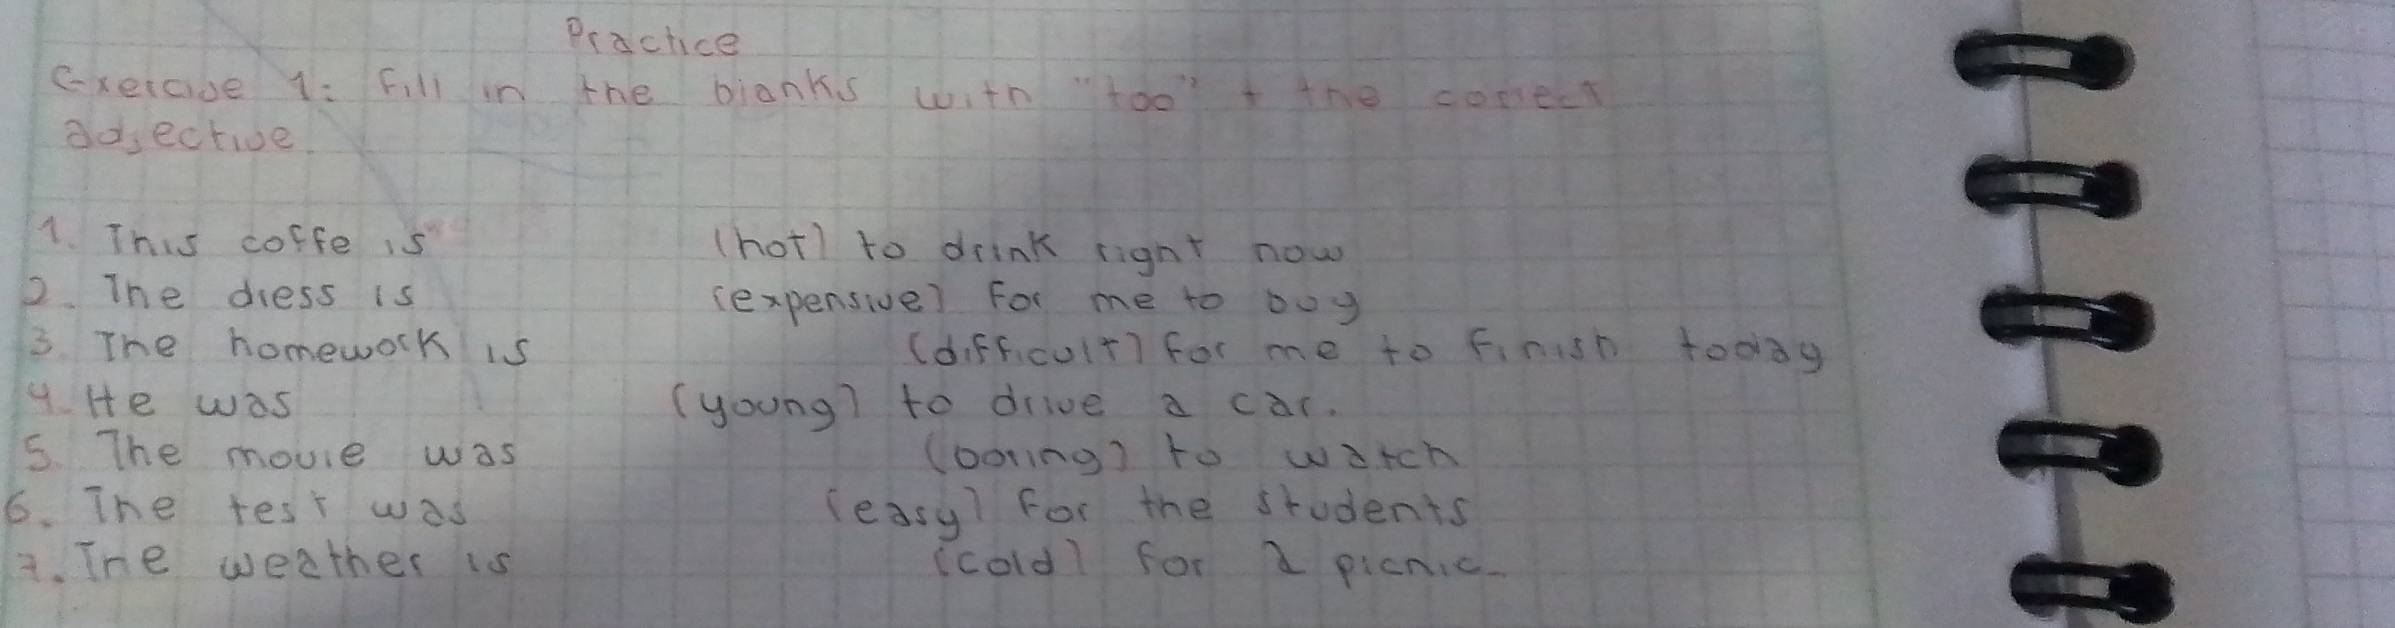 Practice
Exercise 1: Fill in the blanks with "too" + the correct
adjective
1. This coffe is (hot) to drink right now
2. The dress is (expensive) for me to buy
3. The homework is (difficult) for me to finish today
4. He was (young) to drive a car.
5. The movie was (boring) to watch
6. The test was (easy) for the students
7. The weather is (cold) for a picnic.